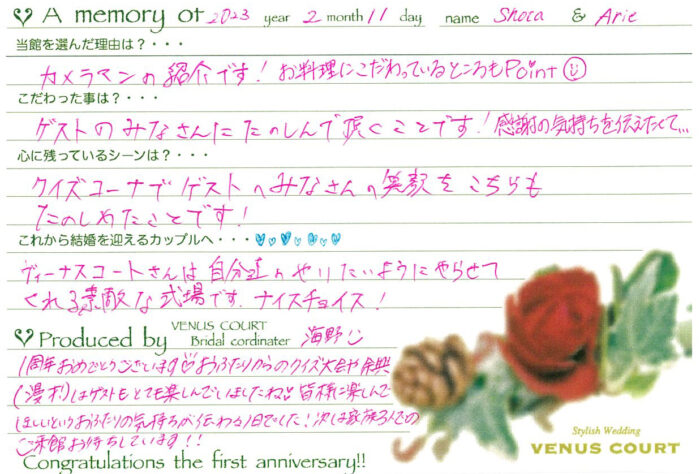 A memory of 2023 year 2 month 11 day name Shota & Arie
当館を選んだ理由は？・・・
カメラマンの紹介です！お料理にこだわっているところもPoint
こだわった事は？・・・
ゲストのみなさんにたのしんで頂くことです！感謝の気持ちを伝えたくて…
心に残っているシーンは？・・・
クイズコーナーでゲストのみなさんの笑顔をこちらも
たのしめたことです！
これから結婚を迎えるカップルへ・・・
ヴィーナスコートさんは自分達のやりたいようにやらせて
くれる素敵な式場です。ナイスチョイス！
Produced by VENUS COURT Bridal cordinater 海野
1周年おめでとうございます♡おふたりからのクイズ大会や余興
(漫才)はゲストもとても楽しんでいましたね！！皆様に楽しんで
ほしいというおふたりの気持ちが伝わる1日でした！次は家族3人での
ご来館お待ちしています！！
Congratulations the first anniversary!!
Stylish Wedding
VENUS COURT